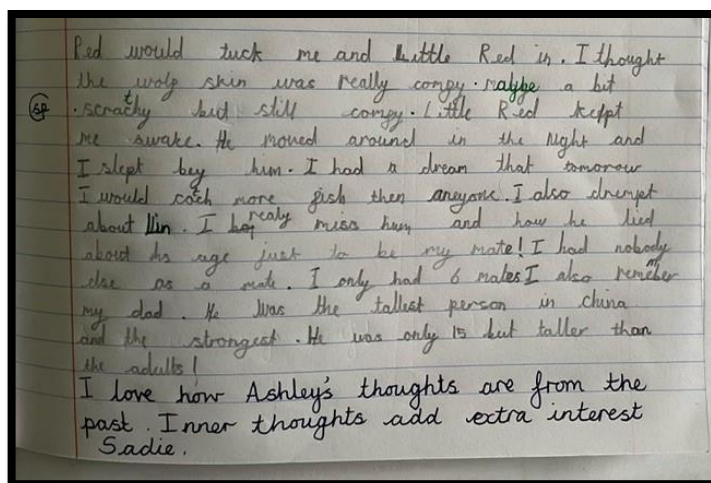 Red would tuck me and Little Red in. I thought
the wolf skin was really comgy. maybe a bit
sp .scratchy but still comgy. Little Red kefpt
me awake. He moved around in the night and
I slept bey him. I had a dream that tomorow
I would cach more fish then aneyone. I also drempt
about Lin. I realy miss him and how he lied
about his age just to be my mate! I had nobody
else as a mate. I only had 6 mates I also remember
my dad. He was the tallest person in china
and the strongest. He was only 15 but taller than
the adults!
I love how Ashley's thoughts are from the
past. Inner thoughts add extra interest
Sadie.